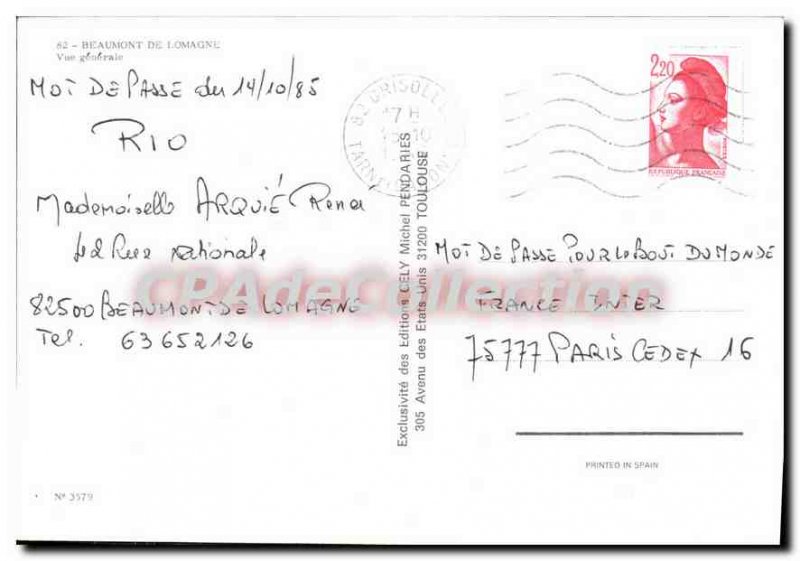 82 - BEAUMONT DE LOMAGNE
Vue générale
MOT DE PASSE du 14/10/85
RIO
Mademoiselle ARQUIÉ
Rue Nationale
82500 BEAUMONT DE LOMAGNE
Tel. 63652126
N° 3579
82 GRISOLLE
7 H
10
TARN
Exclusivité des Editions CELY Michel PENDARIES
305 Avenu des Etats Unis 31200 TOULOUSE
2,20
REPUBLIQUE FRANÇAISE
MOT DE PASSE POUR LE BOUT DU MONDE
FRANCE INTER
75777 PARIS CEDEX 16
PRINTED IN SPAIN
CPAdeCollection